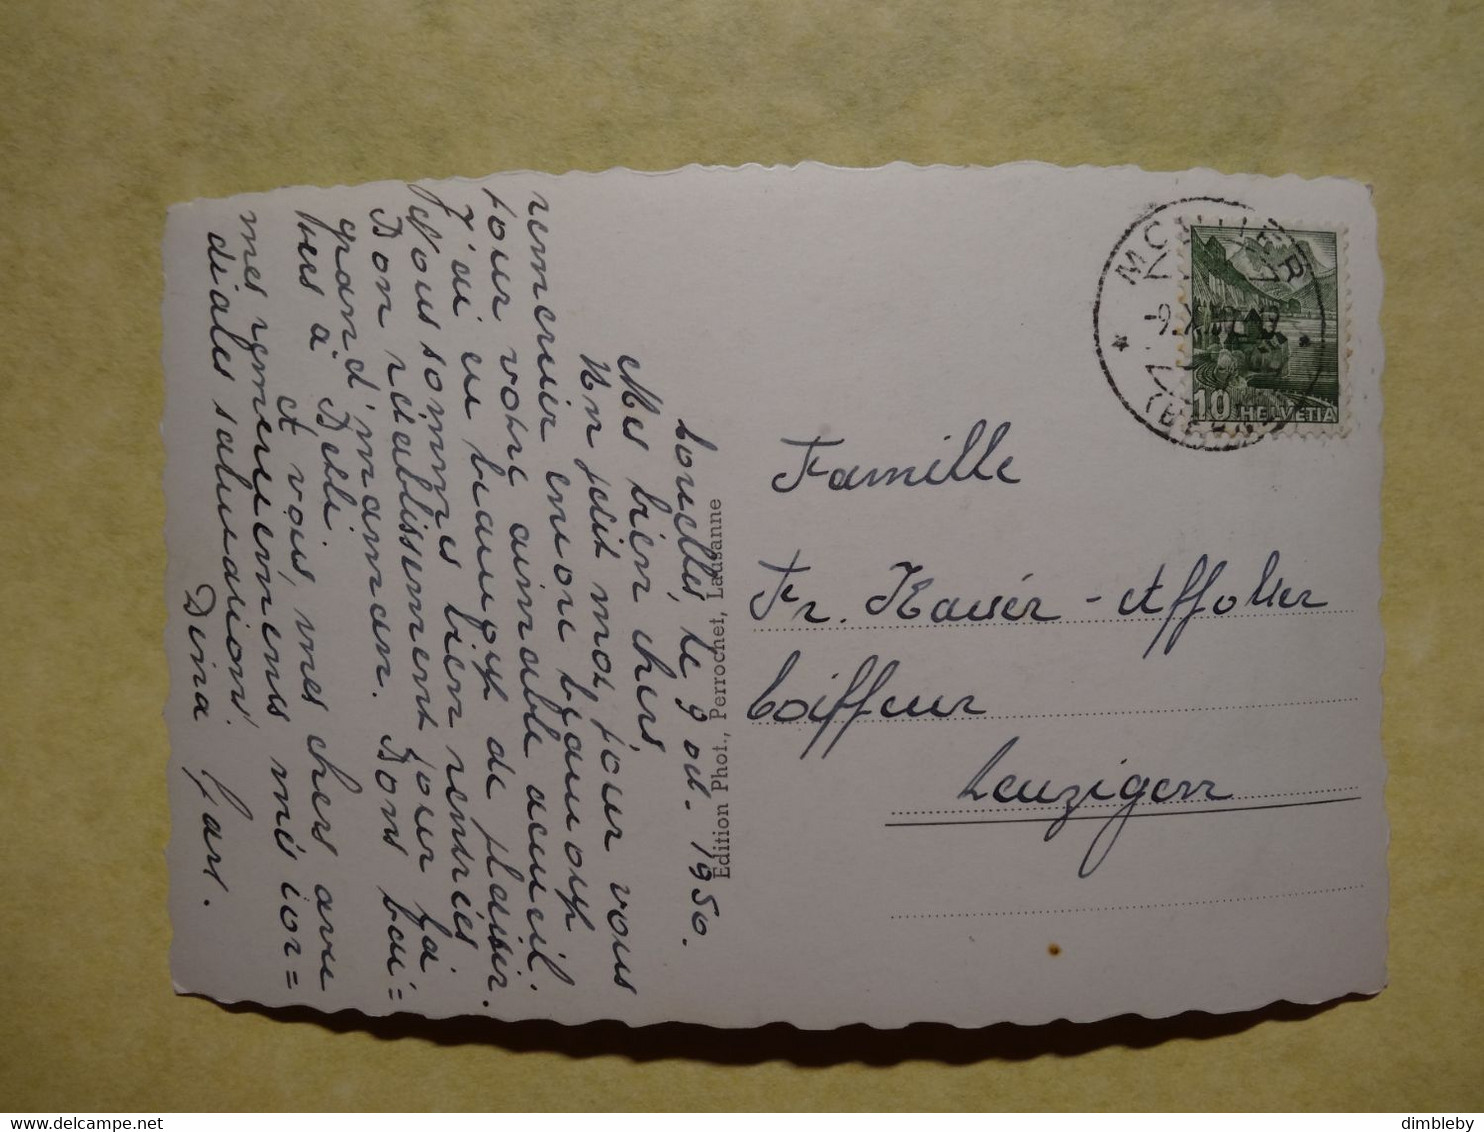 Courcelles, le 9 oct. 1950.
Mes bien chers
Un petit mot, pour vous
remercier encore beaucoup
pour votre aimable accueil.
J'ai eu beaucoup de plaisir.
Nous sommes bien rentrés
Bon rétablissement pour la
grand'maman. Bons bai=
sers à Betli
et vous, mes chers avec
mes remerciements mes cor=
diales salutations.
Dina Gars.
Edition Phot., Perrochet, Lausanne
MOUTIER
(BERN)
10 HELVETIA
Famille
Fr. Kaiser-Affolter
Coiffeur
Leuzigen
dimbleby